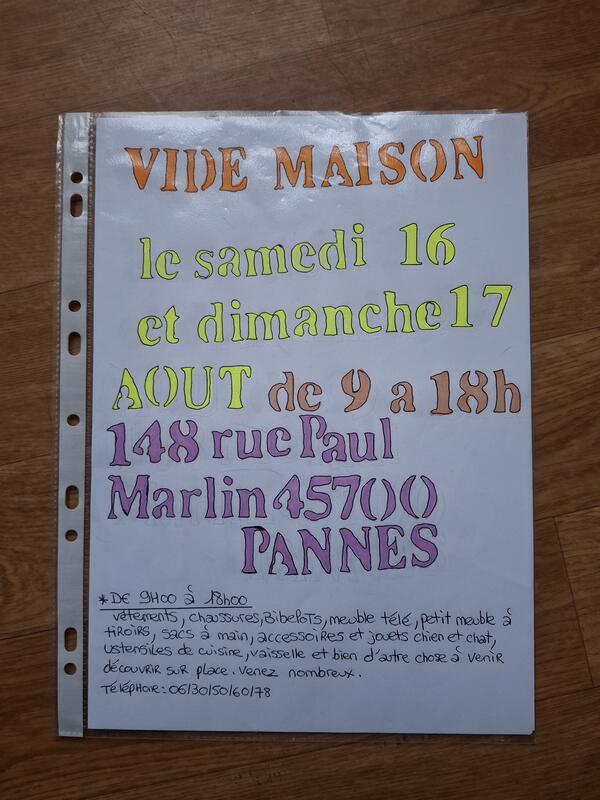 VIDE MAISON
le samedi 16
et dimanche 17
AOUT de 9 a 18h
148 rue Paul
Marlin 45700
PANNES
* DE 9H00 à 18h00
vêtements, chaussures, BibeloTs, meuble télé, petit meuble à
tiroirs, sacs à main, accessoires et jouets chien et chat,
ustensiles de cuisine, vaisselle et bien d'autre chose à venir
découvrir sur place. venez nombreux.
TéléPHone : 06/30/50/60/78